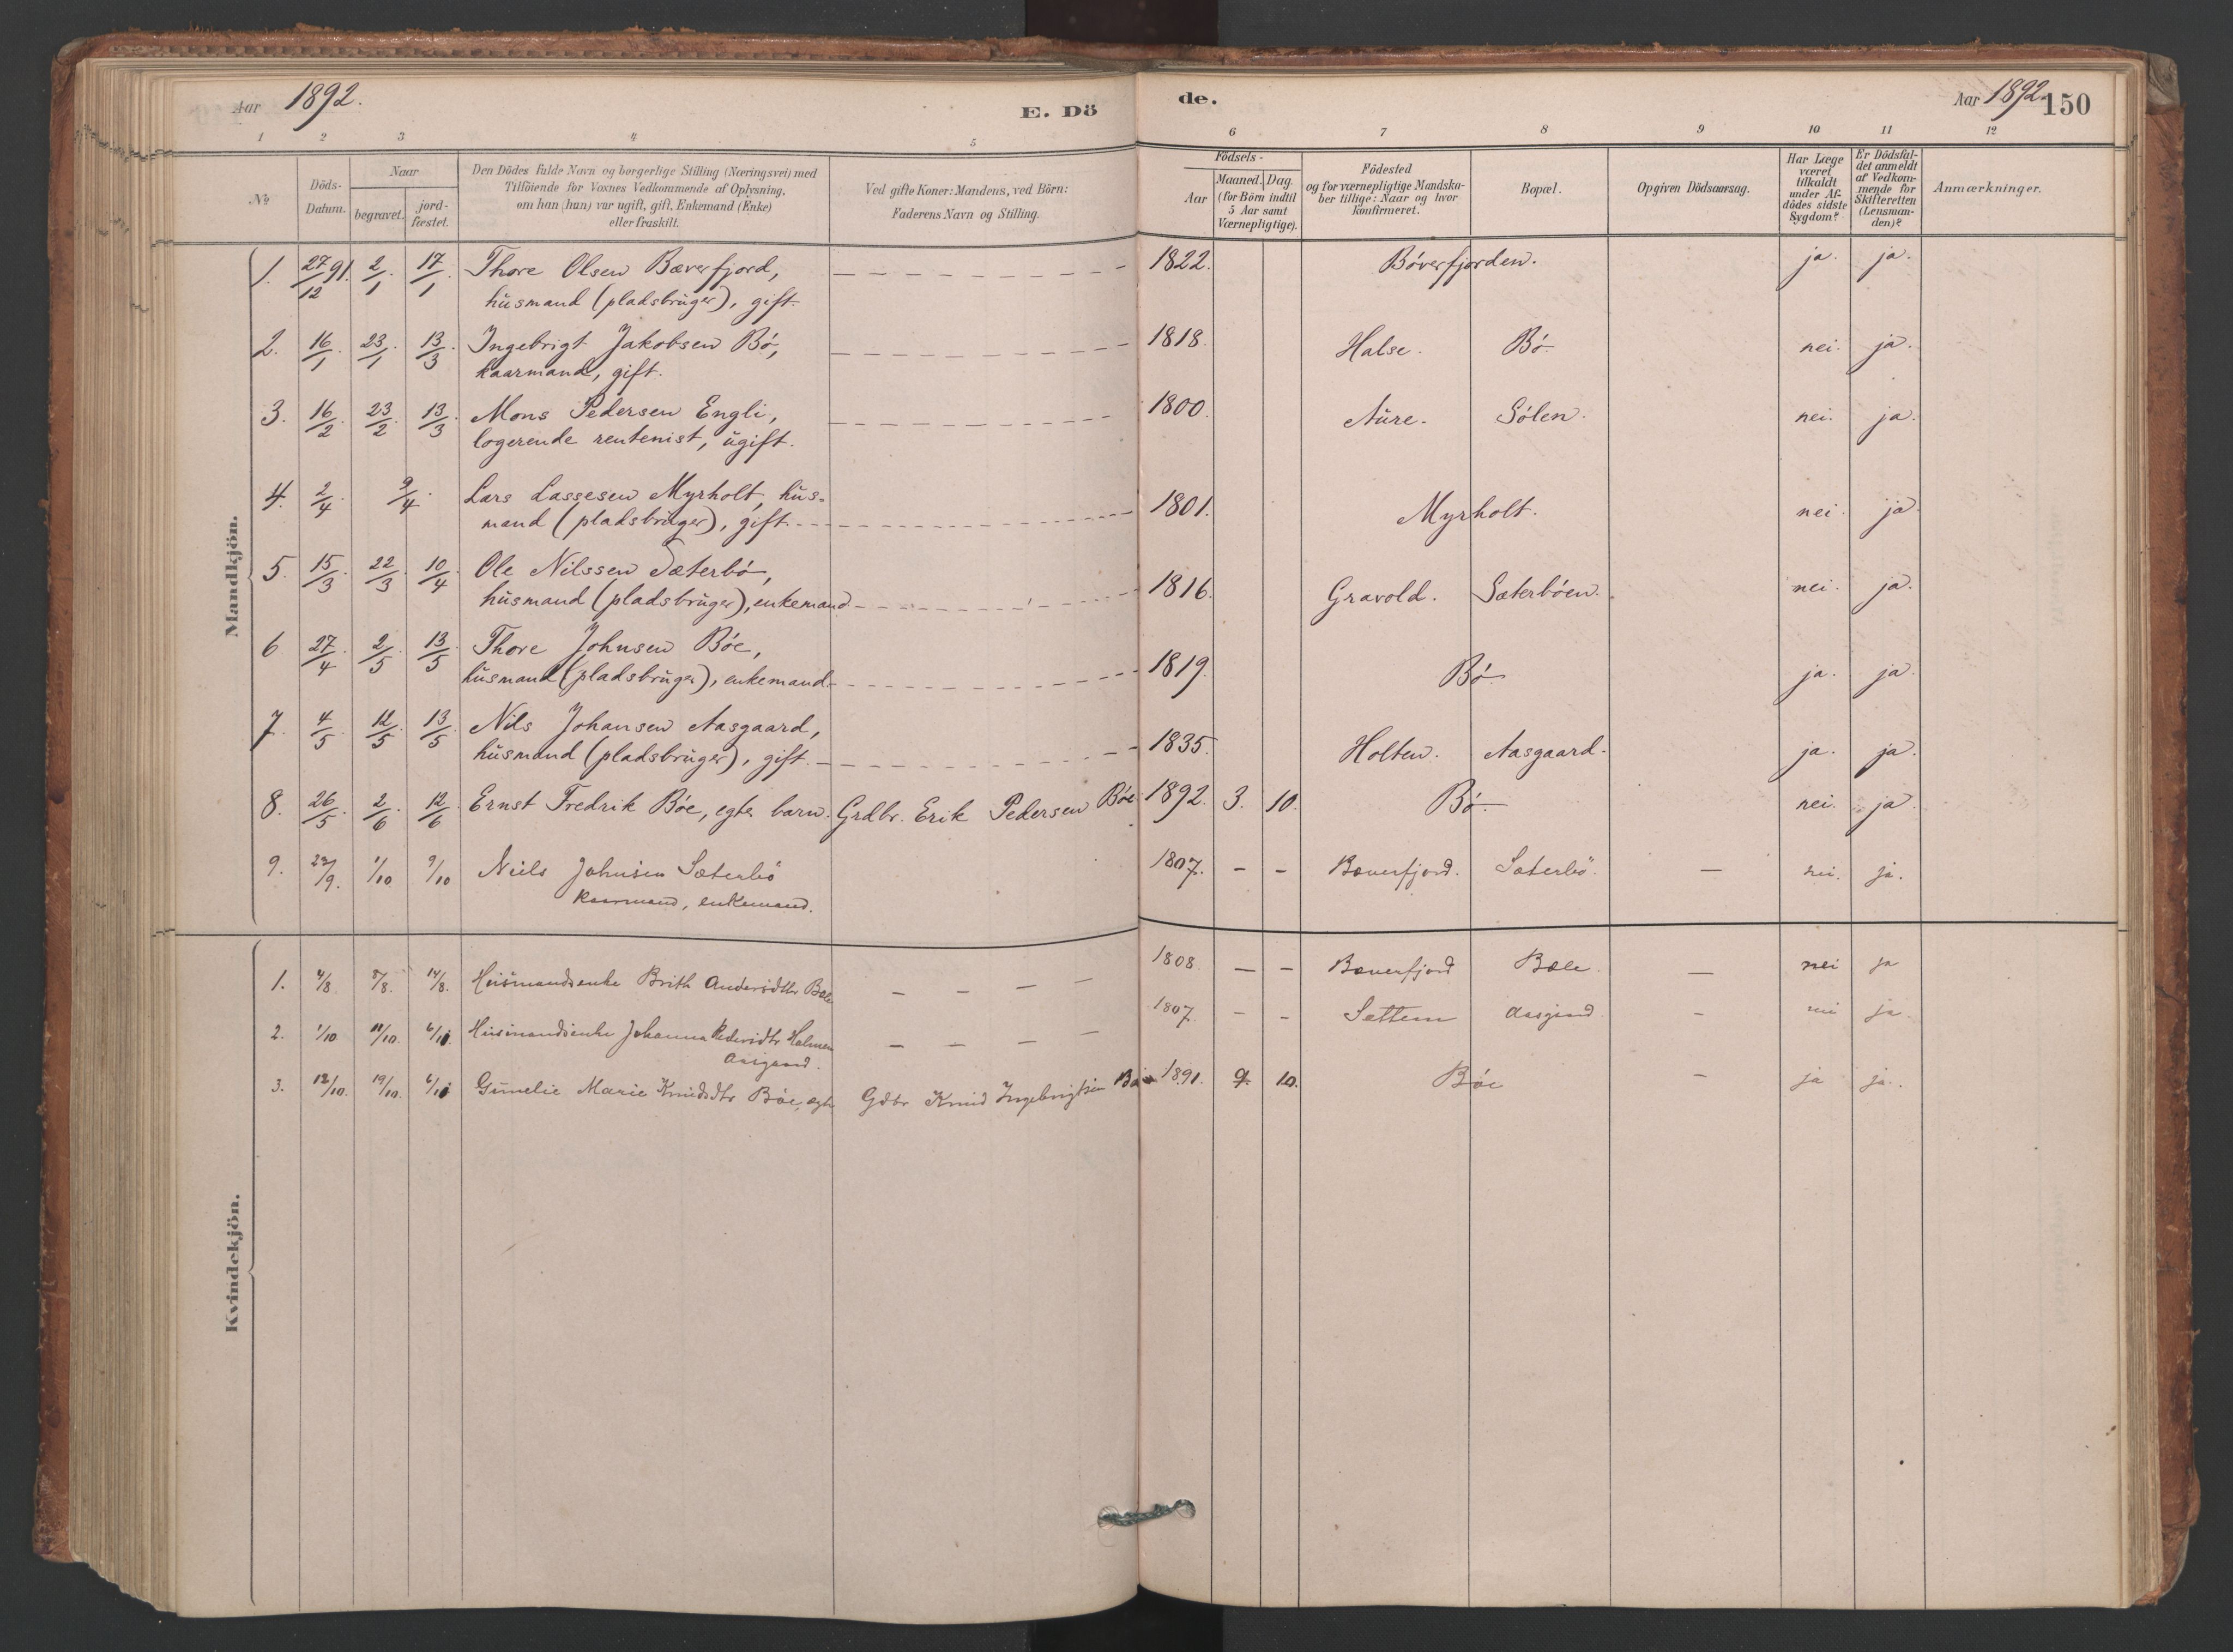 Aar 1892. E. Dö de. Aar 1892. 150
1 2 3 4 5 6 7 8 9 10 11 12
No
Döds-Datum.
Naar
begravet.
jord-fæstet.
Den Dödes fulde Navn og borgerlige Stilling (Næringsvei) med
Tilföiende for Voxnes Vedkommende af Oplysning,
om han (hun) var ugift, gift, Enkemand (Enke)
eller fraskilt.
Ved gifte Koner: Mandens, ved Börn:
Faderens Navn og Stilling.
Födsels-
Aar
Maaned. Dag.
(for Börn indtil
5 Aar samt
Værnepligtige).
Födested
og for værnepligtige Mandska-
ber tillige: Naar og hvor
konfirmeret.
Bopæl.
Opgiven Dödsaarsag.
Har Læge
været
tilkaldt
under Af-
dödes sidste
Sygdom?
Er Dödsfal-
det anmeldt
af Vedkom-
mende for
Skifteretten
(Lensman-
den)?
Anmærkninger.
Mandkjön.
1. 27/12 91. 2/1. 17/1. Thore Olsen Bæverfjord, 1822. Böverfjorden. ja. ja.
husmand (pladsbruger), gift.
2. 16/1. 23/1. 13/3. Ingebrigt Jakobsen Bö, 1818. Halse. Bö. nei. ja.
kaarmand, gift.
3. 16/2. 23/2. 13/3. Mons Pedersen Engli, 1800. Aure. Sölen. nei. ja.
logerende rentenist, ugift.
4. 2/4. 9/4. Lars Lassesen Myrholt, hus-
mand (pladsbruger), gift. 1801. Myrholt. nei. ja
5. 15/3. 22/3. 10/4. Ole Nilssen Sæterbö,
husmand (pladsbruger), enkemand 1816. Gravold. Sæterböen. nei. ja.
6 27/4. 2/5. 13/5. Thore Johnsen Böe,
husmand (pladsbruger), enkemand. 1819. Bö ja. ja
7. 4/5. 12/5. 13/5. Nils Johansen Aasgaard,
husmand (pladsbruger), gift. 1835. Holten. Aasgaard. ja. ja.
8. 26/5. 2/6. 12/6. Ernst Fredrik Böe, egte barn. Grdbr. Erik Pedersen Böe 1892. 3. 10. Bö nei. ja.
9. 1/10 9/10 Niels Johnsen Sæterbö 1807. - - Bæverfjord. Sæterbö. - nei. ja.
Kaarmand, enkemand.
Kvindekjön.
1. 4/8 8/8. 14/8. Husmandsenke Brith Andersdtr Bæle - - - - 1808. - - Bæverfjord Bæle. - nei ja
2. 1/10 11/10. 6/11 Husmandsenke Johanna Pedersdtr Holmen - - - - 1807. - - Settem Aasgaard. - nei ja.
Aasgaard.
3. 12/10. 19/10. 6/11 Gunelie Marie Knudsdtr Böe, egte Gdbr Knud Ingebrigtsen Böe 1891. 9. 10. Böe - ja ja.